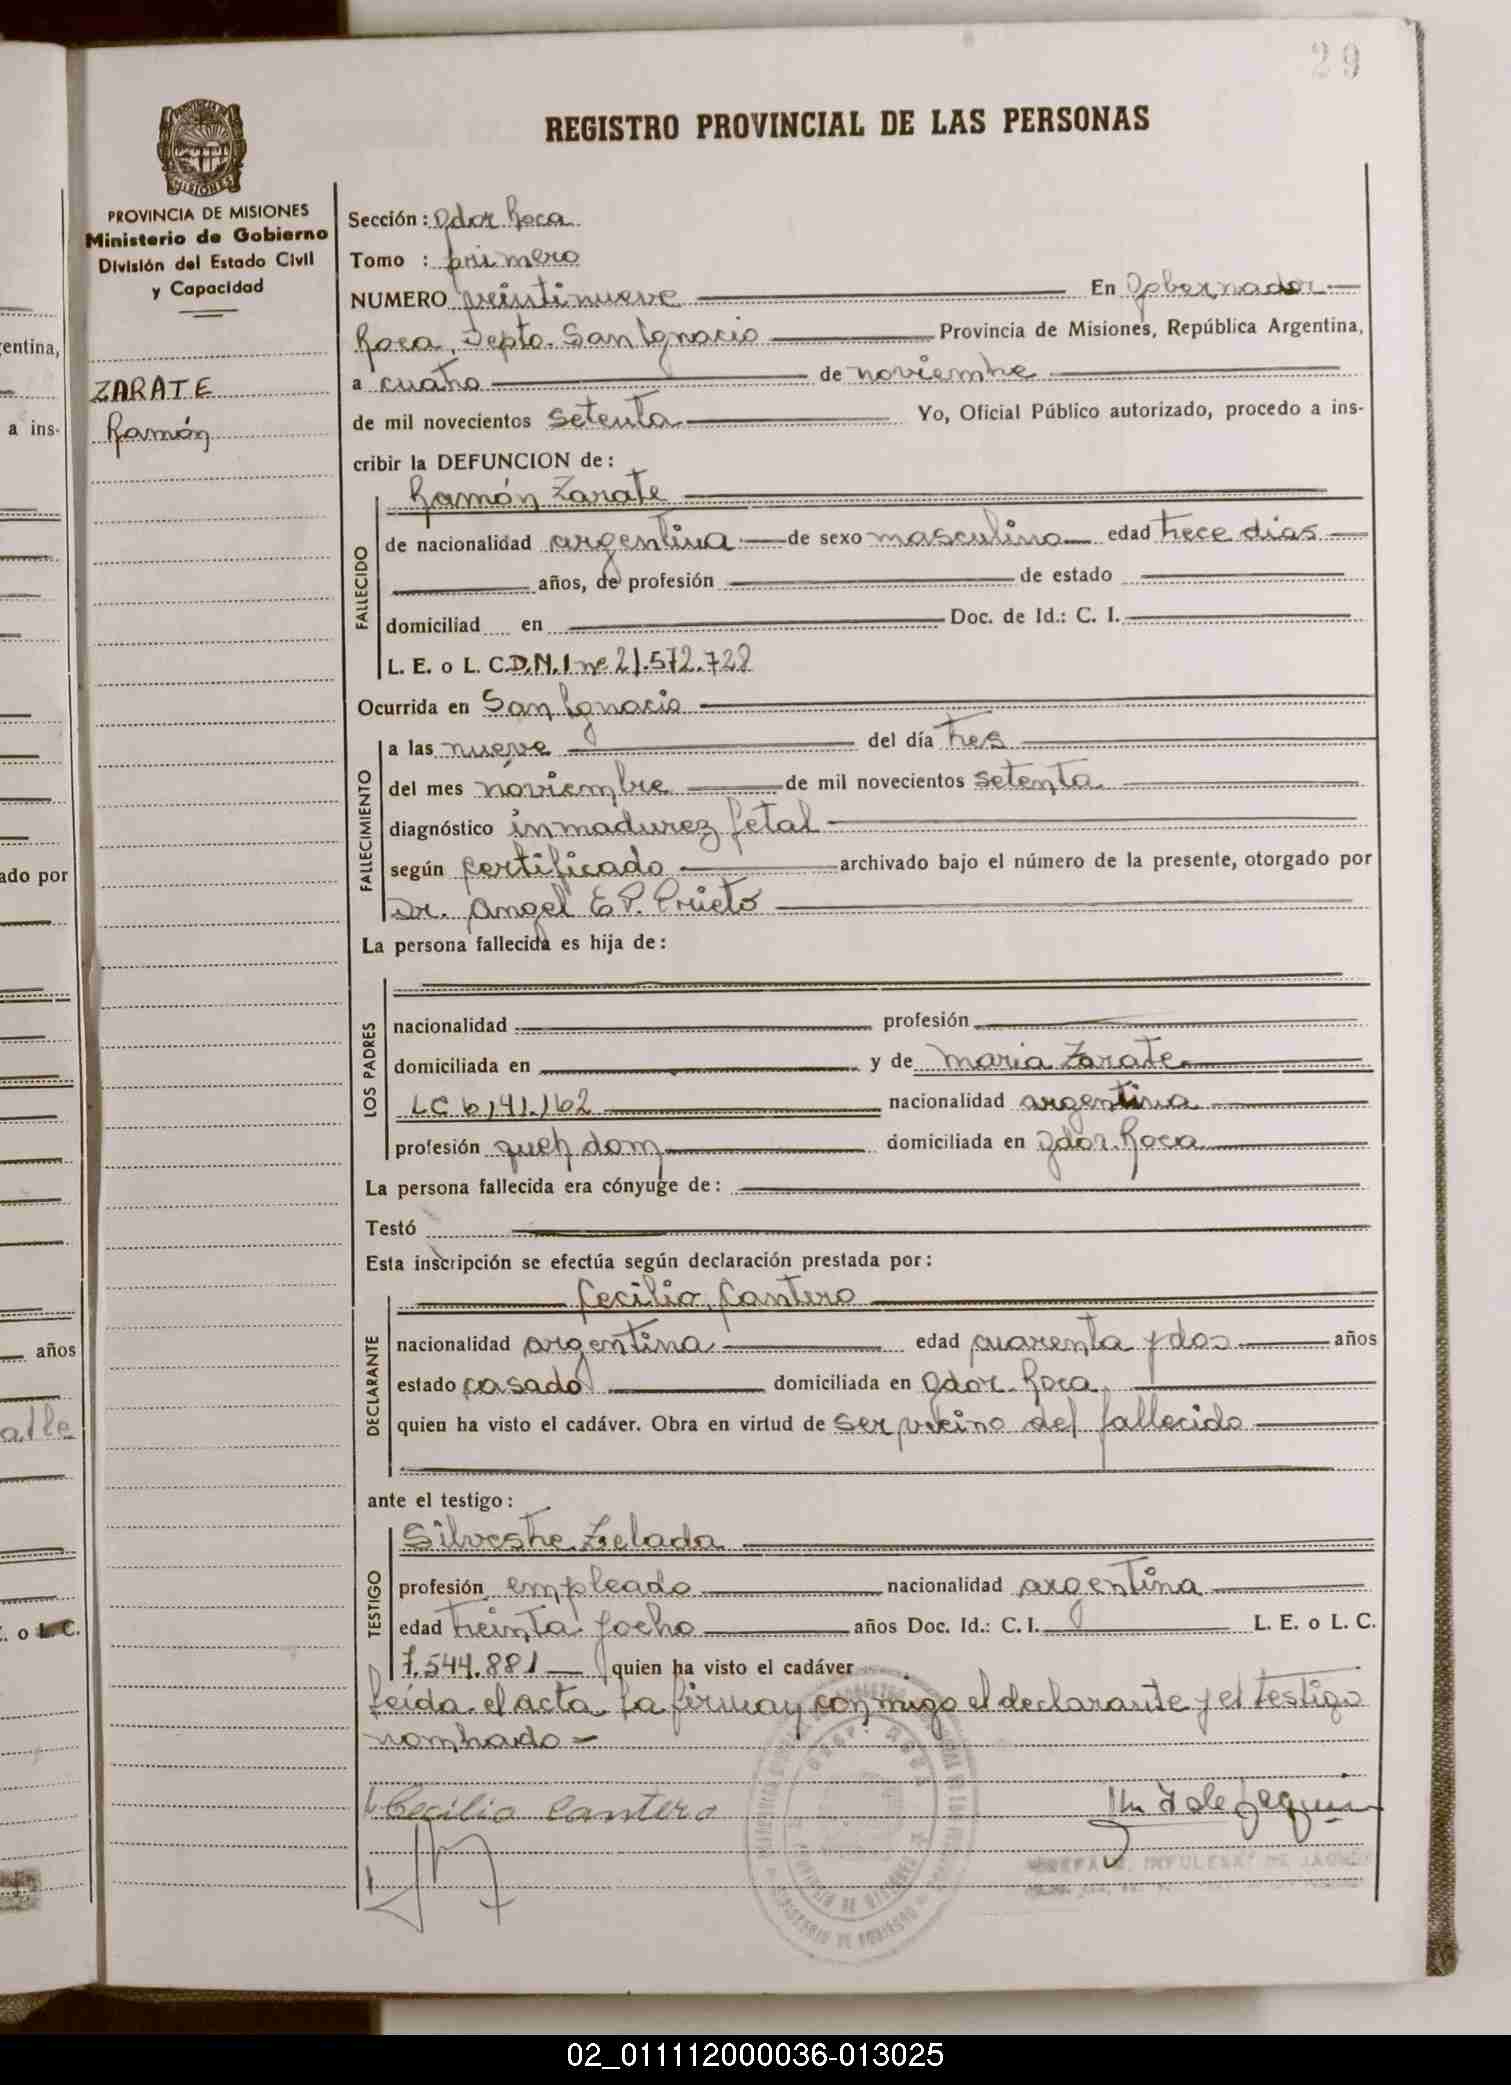 29
REGISTRO PROVINCIAL DE LAS PERSONAS
PROVINCIA DE MISIONES
Ministerio de Gobierno
División del Estado Civil
y Capacidad
ZARATE
Ramón
Sección: Gdor Roca
Tomo : primero
NUMERO veintinueve En Gobernador
Roca, Depto. San Ignacio Provincia de Misiones, República Argentina,
a cuatro de noviembre
de mil novecientos setenta Yo, Oficial Público autorizado, procedo a ins-
cribir la DEFUNCION de:
Ramón Zarate
FALLECIDO
de nacionalidad argentina de sexo masculino edad trece dias
años, de profesión de estado
domiciliad en Doc. de Id.: C. I.
L. E. o L. C. D.N.I nº 21.572.728
Ocurrida en San Ignacio
FALLECIMIENTO
a las nueve del día tres
del mes noviembre de mil novecientos setenta
diagnóstico inmadurez fetal
según certificado archivado bajo el número de la presente, otorgado por
Dr. Angel E P. Prieto
La persona fallecida es hija de:
LOS PADRES
nacionalidad profesión
domiciliada en y de Maria Zarate
LC nacionalidad argentina
profesión queh dom domiciliada en Gdor. Roca
La persona fallecida era cónyuge de:
Testó
Esta inscripción se efectúa según declaración prestada por:
Cecilio Cantero
DECLARANTE
nacionalidad argentina edad cuarenta y dos años
estado casado domiciliada en Gdor. Roca
quien ha visto el cadáver. Obra en virtud de ser vecino del fallecido
ante el testigo:
Silvestre Zelada
TESTIGO
profesión empleado nacionalidad argentina
edad treinta y ocho años Doc. Id.: C. I. L. E. o L. C.
7.544.881 quien ha visto el cadáver
Leída el acta la firma y conmigo el declarante y el testigo
nombrado =
Cecilio Cantero
entina,
a ins-
ado por
años
. o L. C.
02_011112000036-013025